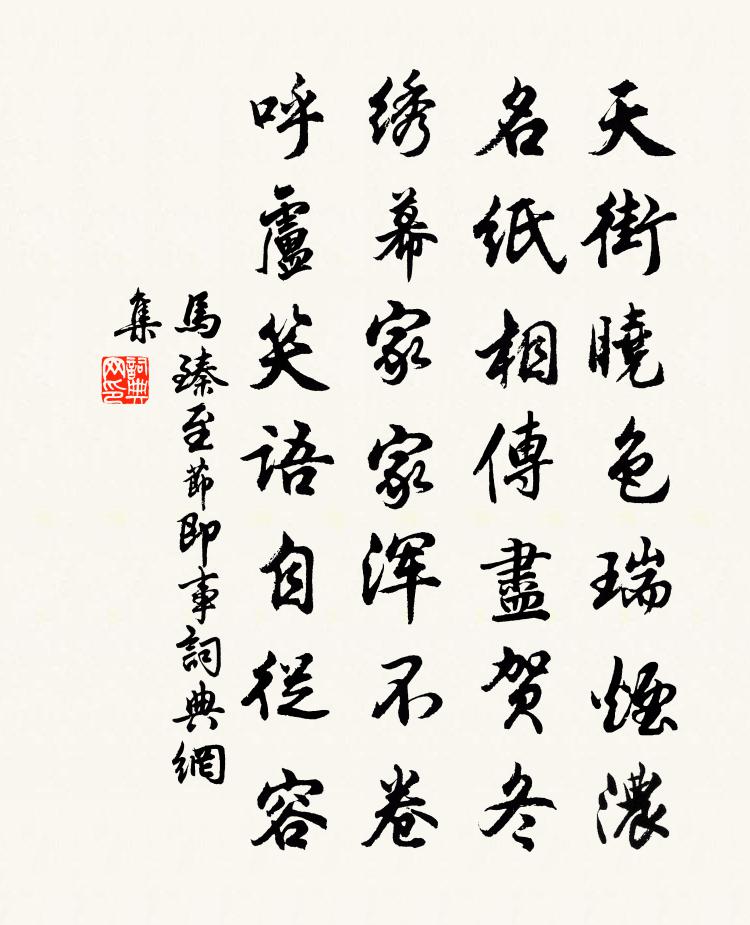 天街曉色瑞煙濃
名紙相傳盡賀冬
绣幕家家浑不卷
呼盧笑語自從容
馬臻至節即事詞典網
集
詞典
网印